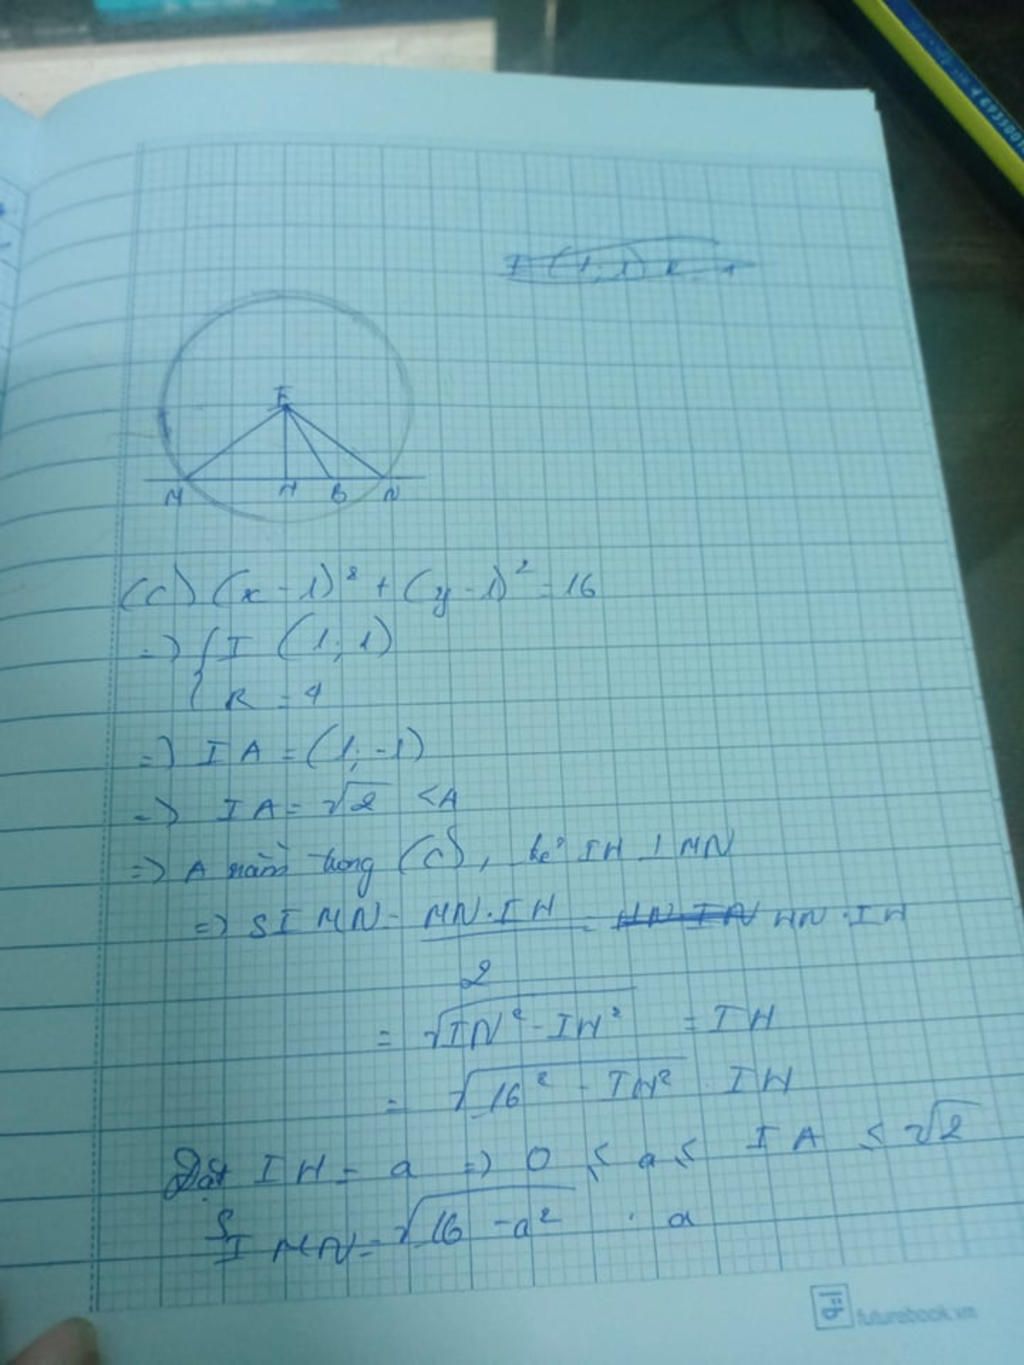 I (1; 1) R
I
M H B N
(C) (x - 1)² + (y - 1)² = 16
=> { I (1; 1)
R = 4
=> IA = (1; -1)
=> IA = √2 < A
=> A nằm trong (C), kẻ IH ⊥ MN
=> SIMN = MN.IH / 2 = HN.IN HN.IH
= √IN² - IH² = IH
= √16² - IH² . IH
Đặt IH = a => 0 ≤ a ≤ IA ≤ √2
S IMN = √16 - a² . a
futurebook.vn